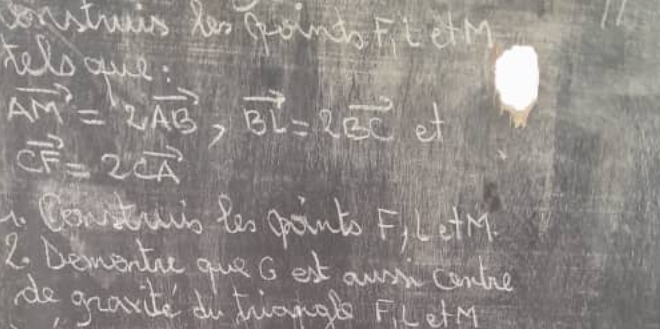 onstruis les points F, L et M
tels que :
AM = 2AB, BL = 2BC et
CF = 2CA
1. Construis les points F, L et M.
2. Demontre que G est aussi centre
de gravité du triangle F, L et M